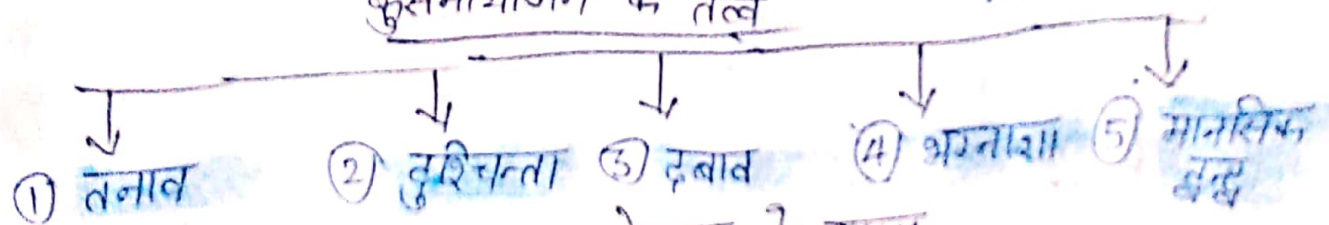 कुसमायोजन के तत्व
① तनाव ② दुश्चिन्ता ③ दबाव ④ भग्नाशा ⑤ मानसिक
द्वन्द्व